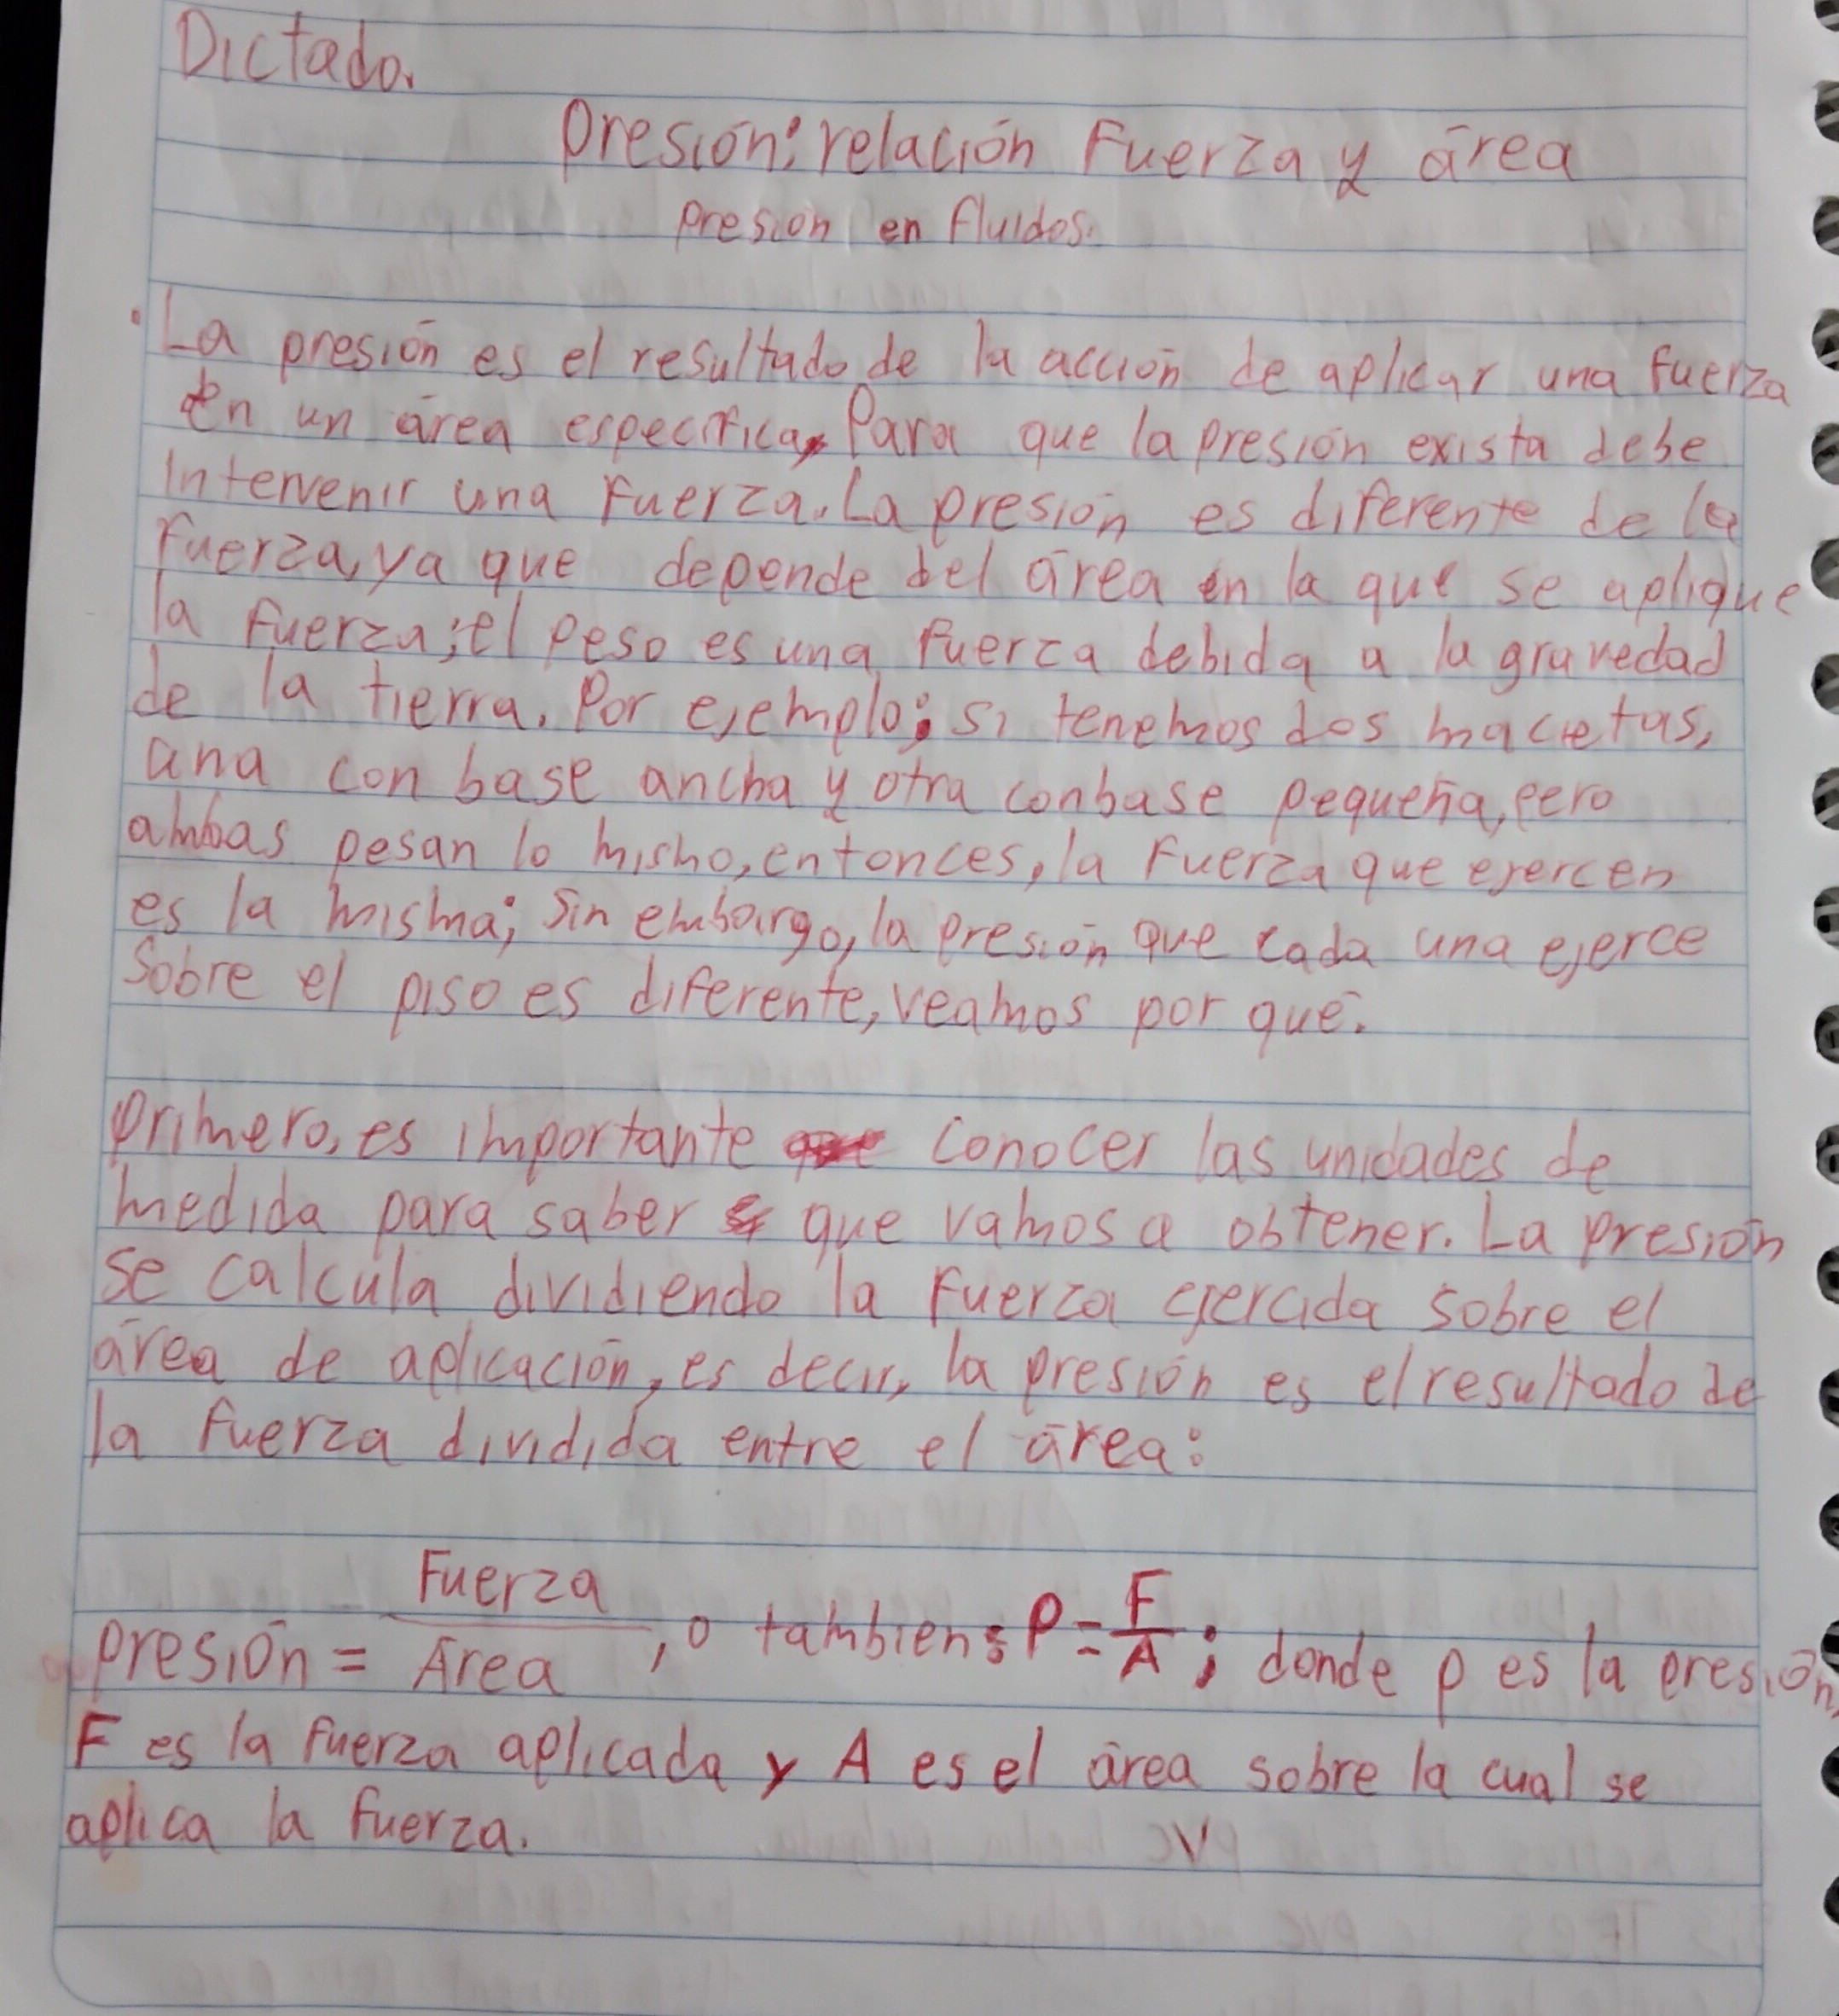 Dictado.
Presión: relación Fuerza y área
presión en fluidos.
· La presión es el resultado de la acción de aplicar una fuerza
en un área específica. Para que la presión exista debe
intervenir una fuerza. La presión es diferente de la
fuerza, ya que depende del área en la que se aplique
la fuerza; el peso es una fuerza debida a la gravedad
de la tierra. Por ejemplo; si tenemos dos macetas,
una con base ancha y otra con base pequeña, pero
ambas pesan lo mismo, entonces, la fuerza que ejercen
es la misma; sin embargo, la presión que cada una ejerce
sobre el piso es diferente, veamos por qué.
primero, es importante conocer las unidades de
medida para saber que vamos a obtener. La presión
se calcula dividiendo la fuerza ejercida sobre el
área de aplicación, es decir, la presión es el resultado de
la fuerza dividida entre el área:
presión = Fuerza / Área, o tambien: P = F/A; donde p es la presión
F es la fuerza aplicada y A es el área sobre la cual se
aplica la fuerza.